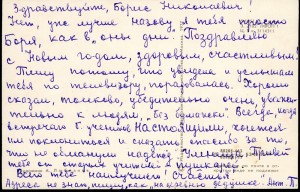 Здравствуйте, Борис Николаевич!
Нет, уж лучше назову я тебя просто
Боря, как в "оны дни". Поздравляю
с Новым годом, здоровым, счастливым!
Пишу потому, что увидела и услышала
тебя по телевизору, порадовалась. Хорошо
сказал, толково, убедительно очень, уважи-
тельно к людям, "без бумажки". Всегда, когда
встречаю б. учеников НАСТОЯЩИМИ, хочется
им поклониться и сказать спасибо за то,
что не обманули надежд Учителя. Привет
тебе от старой учительницы
Всего тебе наилучшего! Счастья!
Адреса не знаю, пишу, как "на деревню дедушке".